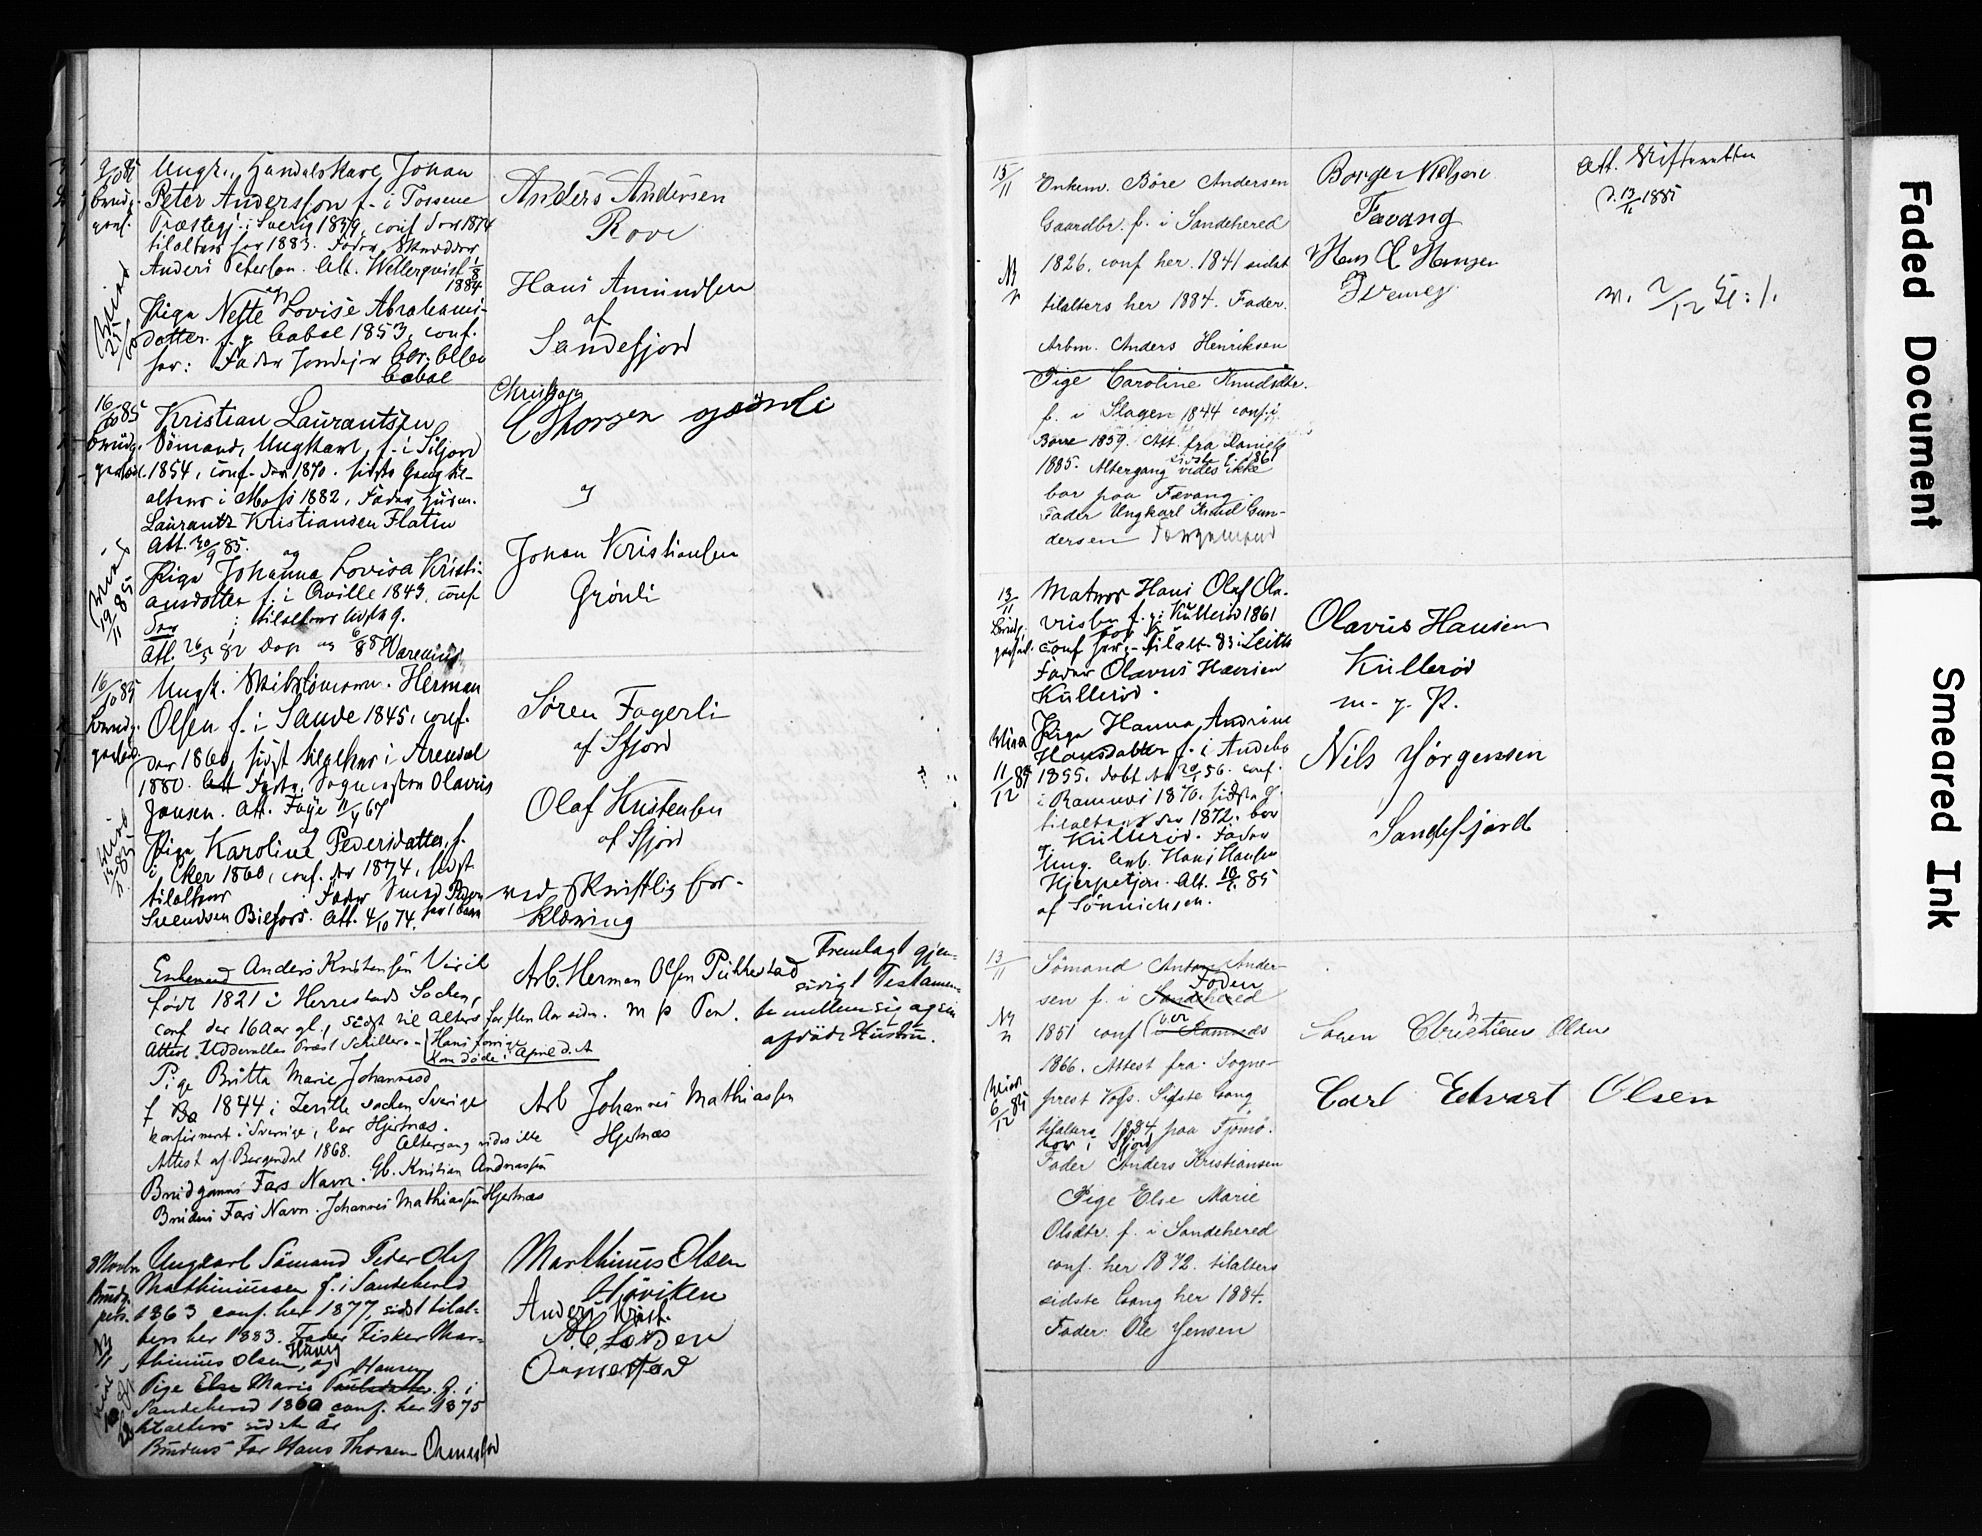 9/10 85
brudg.
gom.
Ungk., Handelskarl Johan
Peter Andersson f. i Tossene
Præstegj. i Sverig 1859, conf der 1874
tilalters her 1883. Fader Skrædder
Anders Peterson. Att. Wellerquist 1/8
1884
og
Pige Nette Lovise Abrahams-
datter f. p. 1853, conf.
her: Fader
Anders Andersen
Rove
Hans Amundsen
af
Sandefjord
16/10 85
brudg.
Kristian Laurantsen
Sömand, Ungkarl, f. i Siljord
1854, conf. der 1870. sidste Gang til-
alters i Moss 1882, Fader Husm.
Laurantz Kristiansen Flatin
Att. 30/9 85.
og
Pige Johanna Lovisa Kristi-
ansdotter f. i Qville 1843, conf
der ; tilalters
Att. 26/5 82
Christian
C Thorsen
og
Johan Kristiansen
Grönli
Viet
19/11 85
16/10 85
brudg.
Ungk. Skibstömmerm. Herman
Olsen f. i Sande 1845, conf.
der 1860, sidst tilalters i Arendal
1880. Fader Olavus
Jansen. Att. Faye 11/4 67
og
Pige Karoline Pedersdatter, f.
i Eker 1860, conf. der 1874, sidst
tilalters . Fader Smed Peder
Svendsen Att. 4/10 74.
Sören Fagerli
af Sfjord
Olaf Kristensen
af Sfjord
ved skriftlig for-
klaring
Enkemand Anders Kristensen Virik
født 1821 i Herrestads Socken,
conf der 16 Aar gl., sidst til Alters for flere Aar siden.
Attest. Uddevallas Præst Schillers - Hans forrige
Kone døde i April d.A
Pige Britta Marie Johannesd
f 1844 i Socken Sverige
konfirmert i Sverige, bor Hjertnæs.
Attest af Bergendal 1868. Altergang vides ikke
Brudgoms Fars Navn. Gb. Kristian Andreassen
Brudens Fars Navn. Johannes Mathiassen Hjertnæs
Arb. Herman Olsen
m p Pen.
Arb Johannes Mathiassen
Hjertnæs
Fremlagt gjen-
sidigt Testamen-
te mellem sig og sin
afdøde Hustru.
3 Novbr
Ungkarl Sömand Peder Olaf
Marthiniussen f. i Sandehered
1863 conf. her 1877 sidst tilal-
ters her 1883. Fader Fisker Mar-
thinius Olsen, og
Hansen
Pige Else Marie f. i
Sandehered 1860 conf. her 1875
tilalters sidste år
Brudens Far Hans Thorsen Ormestad
Marthinius Olsen
Anders Krist.
Ormestad
13/11
Enkem. Böre Andersen
Gaardbr. f. i Sandehered
1826. conf her. 1841 sidst
tilalters her 1884. Fader.
Arbm. Anders Henriksen
Pige Caroline Knudsdtr.
f. i Slagen 1844 conf. i
Borre 1859. Att. fra
1885. Altergang vides ikke
bor paa Fævang.
Fader Ungkarl Knud Gun-
dersen
Borger Nielsen
Fævang
Hans C Hansen
Att. Skifteretten
d. 13/11 1885
v. 2/12 Kl: 1.
13/11
Matros Hans Olaf Ola-
visen f. p. Kullerød 1861
conf her, - tilalt. 83 i Leith
Fader Olavus Hansen
Kullerød.
Pige Hanna Andrine
Hansdatter f. i Andebo
1855. døbt 20/1 56. conf.
i Ramnes 1870. sidste g.
tilalters der 1872. bor
p. Kullerød. Fader
Ung. Arb. Hans Hansen
Hjerpetjon. Att. 10/7 85
af Sönnichsen.
11/12 85
Olavus Hansen
Kullerød
m. p. P.
Nils Jörgensen
Sandefjord
13/11
Sömand Anton Ander-
Föden
sen f. i Sandehered
1851 conf
1866. Attest fra Sogne-
prest Voss. Sidste Gang
tilalters 1884 paa Tjömö.
bor i Sfjord
Fader Anders Kristiansen
Pige Else Marie
Olsdtr. f. i Sandehered
conf. her 1872. tilalters
sidste Gang her 1884.
Fader: Ole Jensen
6/12 85
Soren Christian Olsen
Carl Edvart Olsen
Faded Document
Smeared Ink